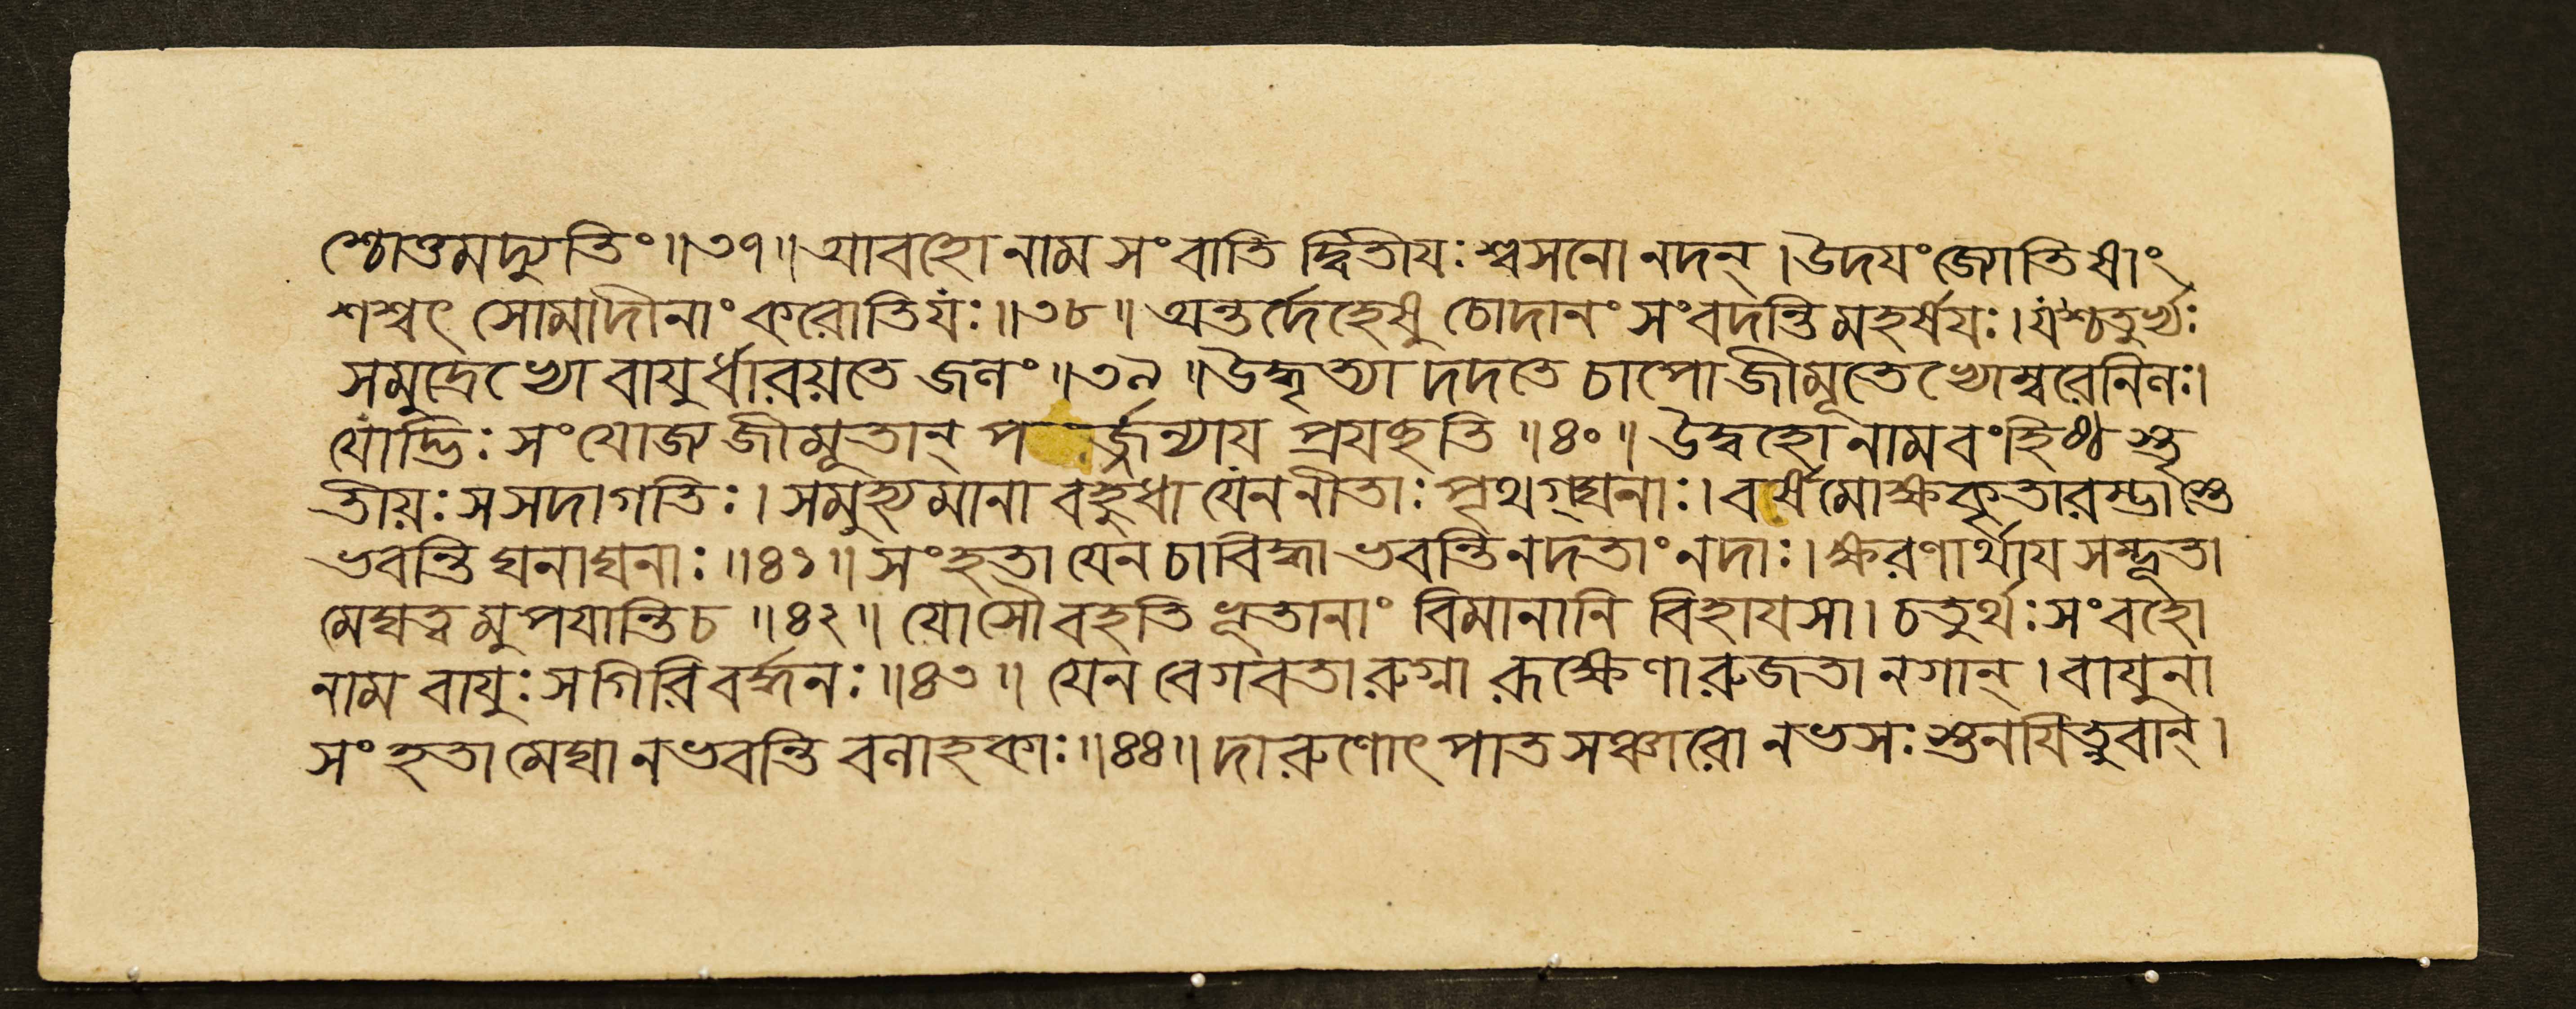 শ্চোত্তমদ্যুতিং॥৩৭॥আবহো নাম সংবাতি দ্বিতীয়ঃশ্বসনো নদন্।উদয়ং জ্যোতিষাং
শশ্বৎ সোমাদীনাং করোতিযঃ॥৩৮॥ অন্তর্দেহেষু চোদানং সংবদন্তি মহর্ষয়ঃ।যশ্চতুর্ভ্যঃ
সমুদ্রেভ্যো বায়ুর্ধারয়তে জলং॥৩৯॥উদ্ধৃত্যা দদতে চাপো জীমূতেভ্যোম্বরেনিলঃ।
যোদ্ভিঃ সংযোজ্য জীমূতান্ পর্জ্জন্যায় প্রযচ্ছতি॥৪০॥ উদ্বহো নামবংহিষ্ঠ স্তৃ
তীয়ঃ সসদাগতিঃ। সমুহ্যমানা বহুধা যেননীতাঃ পৃথগ্ঘনাঃ। বর্ষমোক্ষকৃতারম্ভাস্তে
ভবন্তি ঘনাঘনাঃ॥৪১॥ সংহৃতা যেন চাবিদ্ধা ভবন্তিনদতাংনদাঃ। ক্ষরণার্থায় সম্ভূতা
মেঘত্ব মুপযান্তি চ॥৪২॥ যোসৌ বহতি ভূতানাং বিমানানি বিহায়সা। চতুর্থঃ সংবহো
নাম বায়ুঃ সগিরি বর্দ্ধনঃ॥৪৩॥ যেন বেগবতারুগ্না রূক্ষেণারুজতা নগান্। বায়ুনা
সংহৃতা মেঘা নভবন্তি বলাহকাঃ॥৪৪॥ দারুণোৎপাত সঞ্চারো নভসঃ স্তনয়িত্নুবান্।